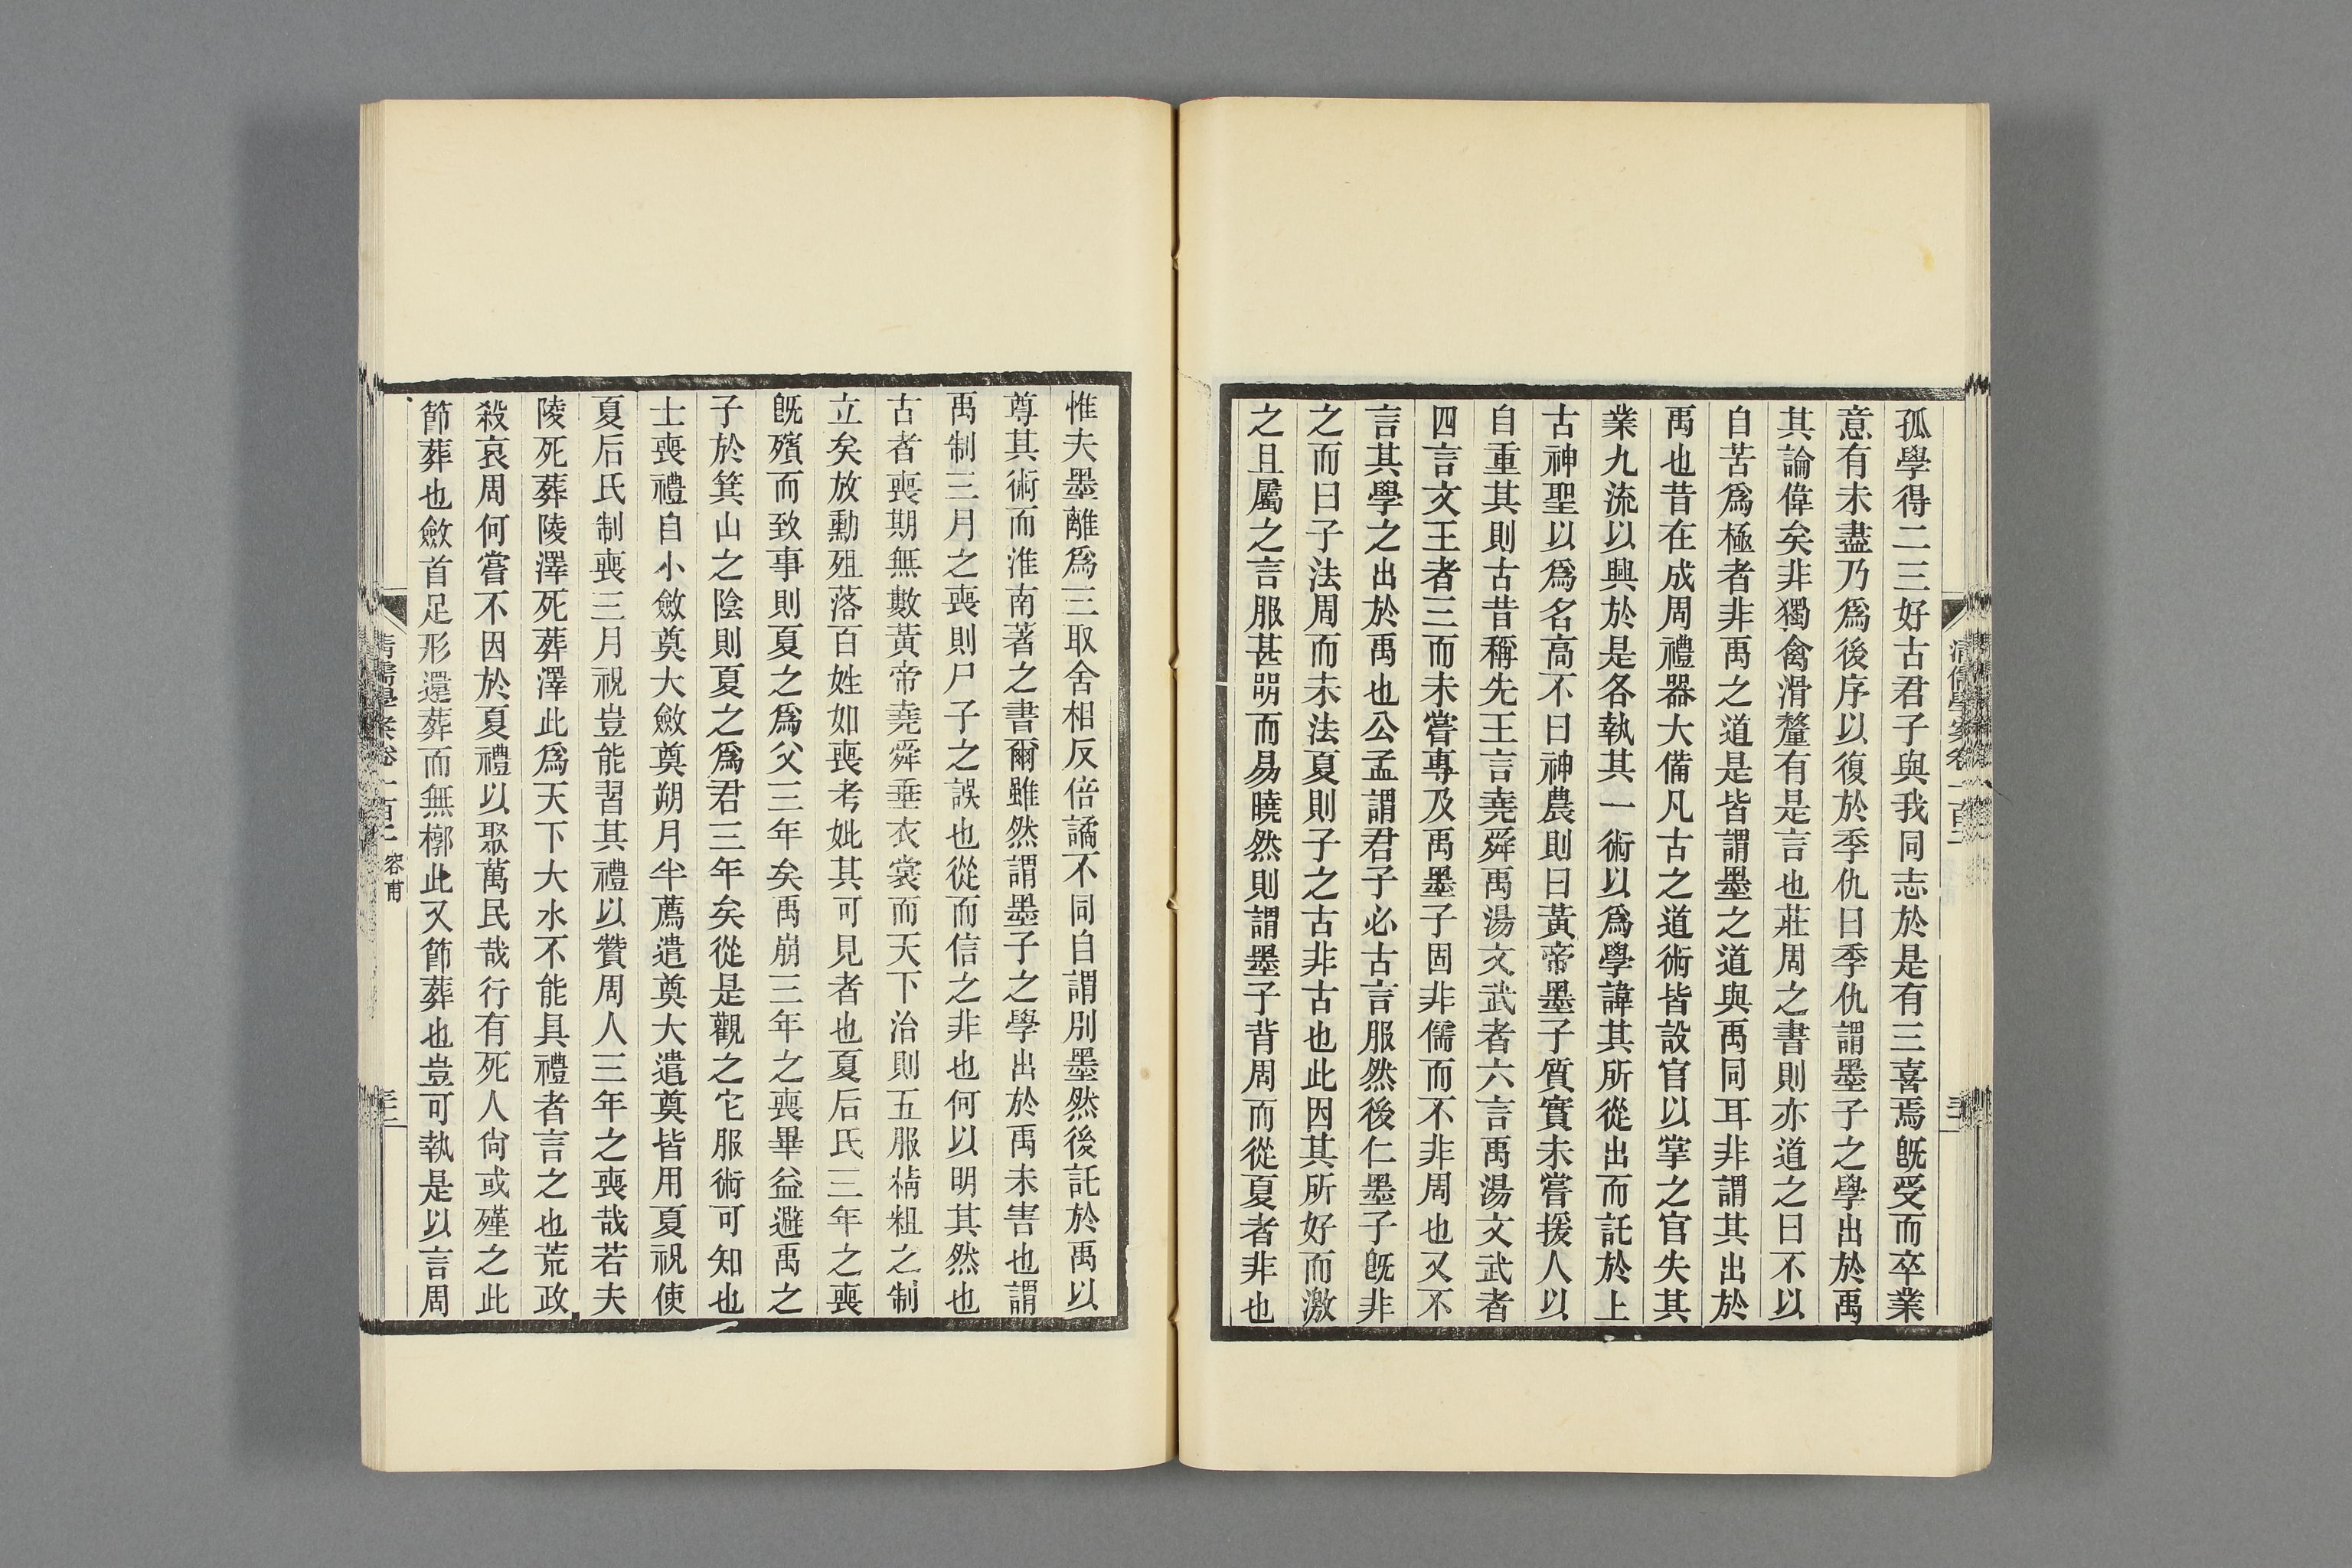 孤學得二三好古君子與我同志於是有三喜焉旣受而卒業
意有未盡乃爲後序以復於季仇曰季仇謂墨子之學出於禹
其論偉矣非獨禽滑釐有是言也莊周之書則亦道之曰不以
自苦爲極者非禹之道是皆謂墨之道與禹同耳非謂其出於
禹也昔在成周禮器大備凡古之道術皆設官以掌之官失其
業九流以興於是各執其一術以爲學諱其所從出而託於上
古神聖以爲名高不曰神農則曰黃帝墨子質實未嘗援人以
自重其則古昔稱先王言堯舜禹湯文武者六言禹湯文武者
四言文王者三而未嘗專及禹墨子固非儒而不非周也又不
言其學之出於禹也公孟謂君子必古言服然後仁墨子旣非
之而曰子法周而未法夏則子之古非古也此因其所好而激
之且屬之言服甚明而易曉然則謂墨子背周而從夏者非也
惟夫墨離爲三取舍相反倍譎不同自謂別墨然後託於禹以
尊其術而淮南著之書爾雖然謂墨子之學出於禹未害也謂
禹制三月之喪則尸子之誤也從而信之非也何以明其然也
古者喪期無數黃帝堯舜垂衣裳而天下治則五服精粗之制
立矣放勳殂落百姓如喪考妣其可見者也夏后氏三年之喪
旣殯而致事則夏之爲父三年矣禹崩三年之喪畢益避禹之
子於箕山之陰則夏之爲君三年矣從是觀之它服術可知也
士喪禮自小斂奠大斂奠朔月半薦遣奠大遣奠皆用夏祝使
夏后氏制喪三月祝豈能習其禮以贊周人三年之喪哉若夫
陵死葬陵澤死葬澤此爲天下大水不能具禮者言之也荒政
殺哀周何嘗不因於夏禮以聚萬民哉行有死人尙或殣之此
節葬也斂首足形還葬而無槨此又節葬也豈可執是以言周
清儒學案卷一百二 容甫